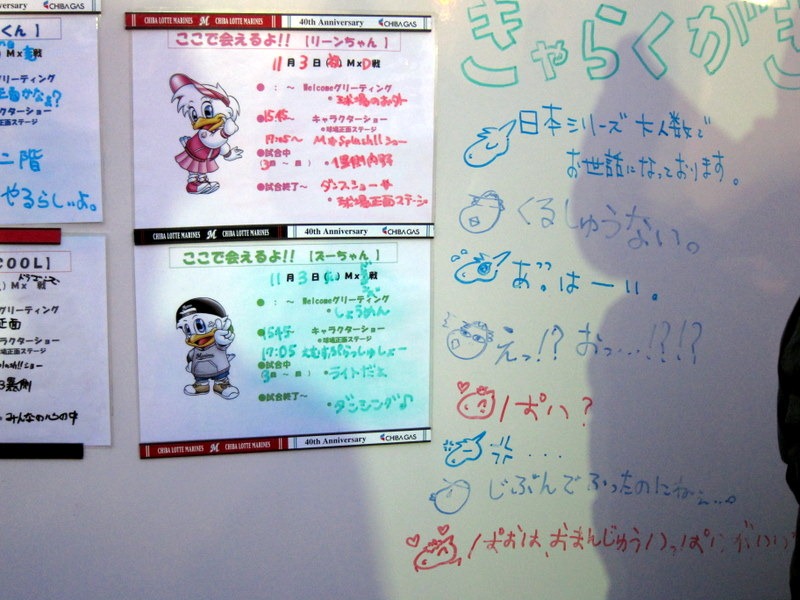 くん 】
Mx 戦
グリーティング
面かなぁ?
クターショー
正面ステージ
二階
やるらしいよ。
COOL】
Mx 戦
グリーティング
正面
ラクターショー
正面ステージ
plash!!ショー
みんなの心の中
CHIBA LOTTE MARINES M CHIBA LOTTE MARINES 40th Anniversary CHIBA GAS
ここで会えるよ!! 【リーンちゃん】
11月3日 MxD戦
● : ～ Welcomeグリーティング
・球場のお外
●1545～ キャラクターショー
●球場正面ステージ
17:05～ M☆Splash!!ショー
●試合中
(3回～ 回) ・1塁側内野
●試合終了～ ダンスショー
・球場正面ステージ
CHIBA LOTTE MARINES M CHIBA LOTTE MARINES 40th Anniversary CHIBA GAS
ここで会えるよ!! 【ズーちゃん】
11月3日 Mx 戦
● : ～ Welcomeグリーティング
・しょうめん
●1545～ キャラクターショー
●球場正面ステージ
17:05 えむすぷらっしゅしょー
●試合中
3回～ 回) ・ライトだよ
●試合終了～
・ダンシング♪
CHIBA LOTTE MARINES M CHIBA LOTTE MARINES 40th Anniversary CHIBA GAS
きゃらくがき
日本シリーズ 大人数で
お世話になっております。
くるしゅうない。
あ゛っ。はーい。
えっ!? おっ…!?!?
ぱい?
・・・
じぶんでふったのにねぇ…。
おまんじゅう